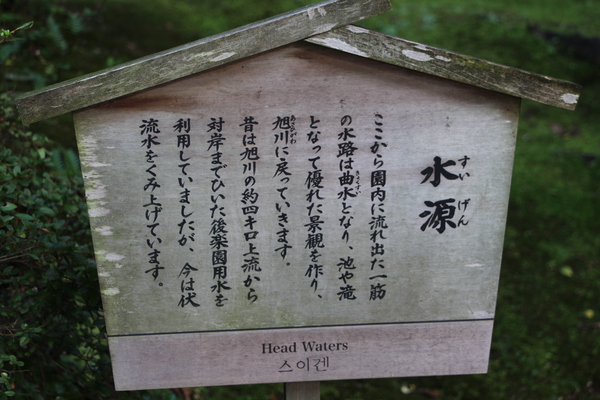 水源
すいげん
ここから園内に流れ出た一筋
の水路は曲水となり、池や滝
きょくすい
となって優れた景観を作り、
旭川に戻っていきます。
あさひがわ
昔は旭川の約四キロ上流から
対岸までひいた後楽園用水を
利用していましたが、今は伏
流水をくみ上げています。
Head Waters
스이겐